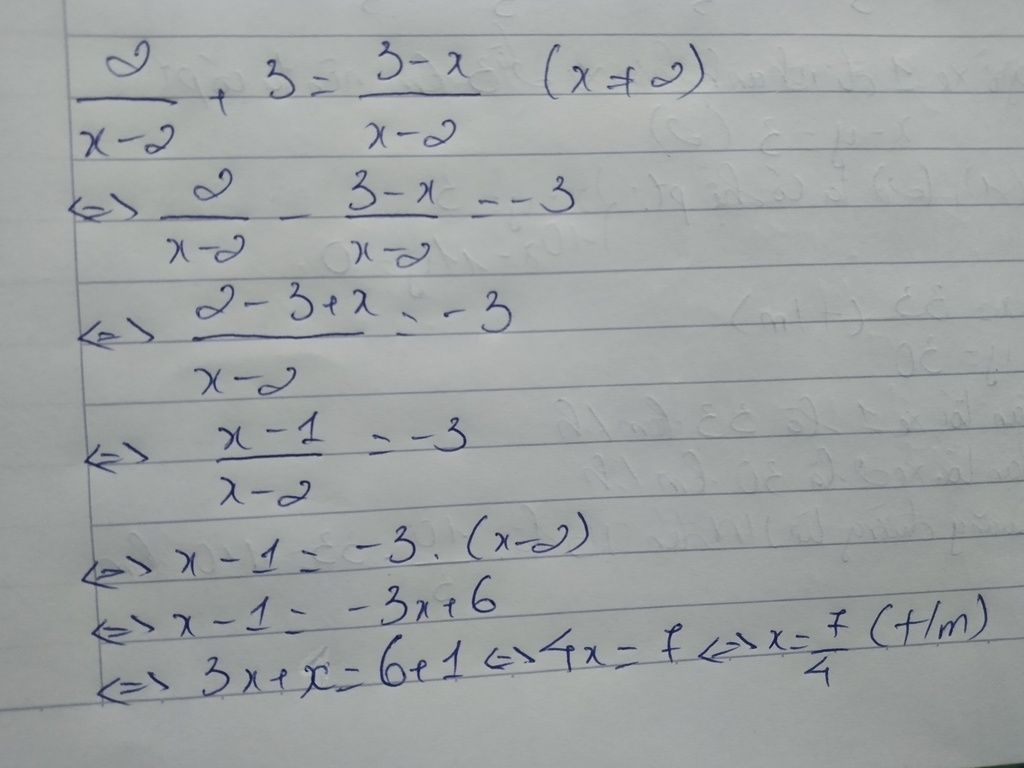 2/(x-2) + 3 = (3-x)/(x-2) (x ≠ 2)
<=> 2/(x-2) - (3-x)/(x-2) = -3
<=> (2-3+x)/(x-2) = -3
<=> (x-1)/(x-2) = -3
<=> x-1 = -3.(x-2)
<=> x-1 = -3x+6
<=> 3x+x = 6+1 <=> 4x = 7 <=> x = 7/4 (t/m)